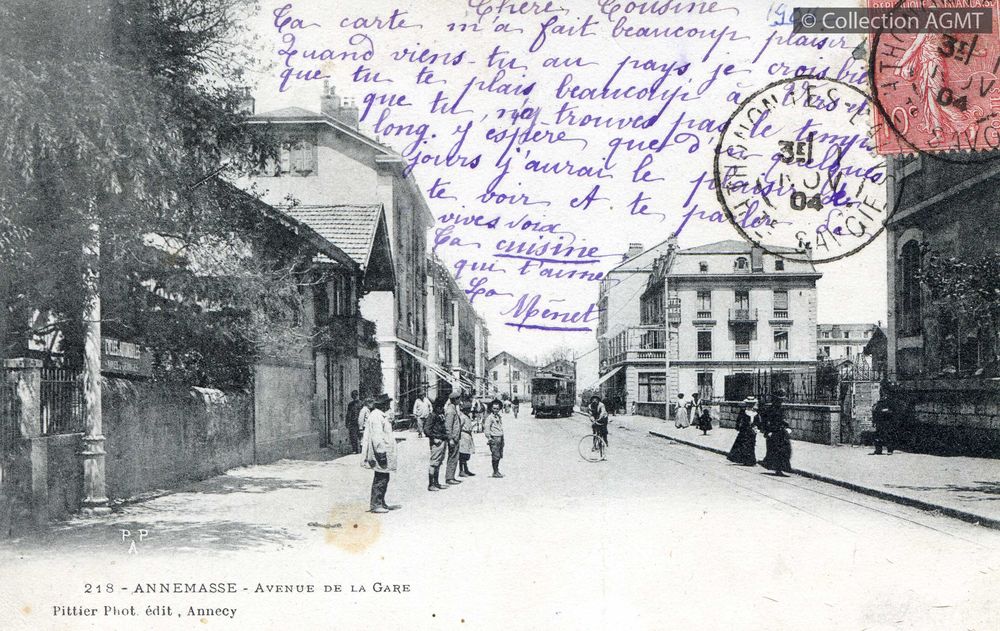 © Collection AGMT
Chère Cousine
Ta carte m'a fait beaucoup plaisir
Quand viens-tu au pays je crois bien
que tu te plais beaucoup à
que tu n'a trouves pas le temps
long. j'espère que d'ici quelques
jours j'aurai le plaisir de
te voir et te parler de
vives voix
Ta cuisine
qui t'aime
La Ménet
3E
04
10
3E
04
SAVOIE
PPA
218 - ANNEMASSE - AVENUE DE LA GARE
Pittier Phot. édit, Annecy